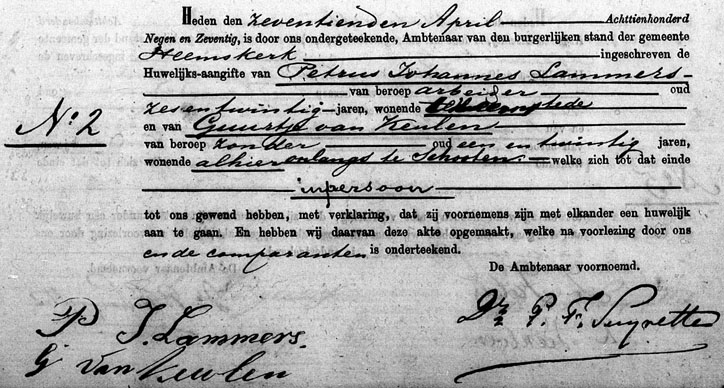 Heden den zeventienden April Achttienhonderd
Negen en Zeventig, is door ons ondergeteekende, Ambtenaar van den burgerlijken stand der gemeente
Heemskerk ingeschreven de
Huwelijks-aangifte van Petrus Johannes Lammers
van beroep arbeider oud
zesentwintig jaren, wonende
en van Guurtje van Keulen
van beroep zonder oud een en twintig jaren,
wonende alhier onlangs te Schoten welke zich tot dat einde
in persoon
tot ons gewend hebben, met verklaring, dat zij voornemens zijn met elkander een huwelijk
aan te gaan. En hebben wij daarvan deze akte opgemaakt, welke na voorlezing door ons
en de comparanten is onderteekend.
De Ambtenaar voornoemd.
No. 2
P J. Lammers.
G van Keulen
Dr. P. F.